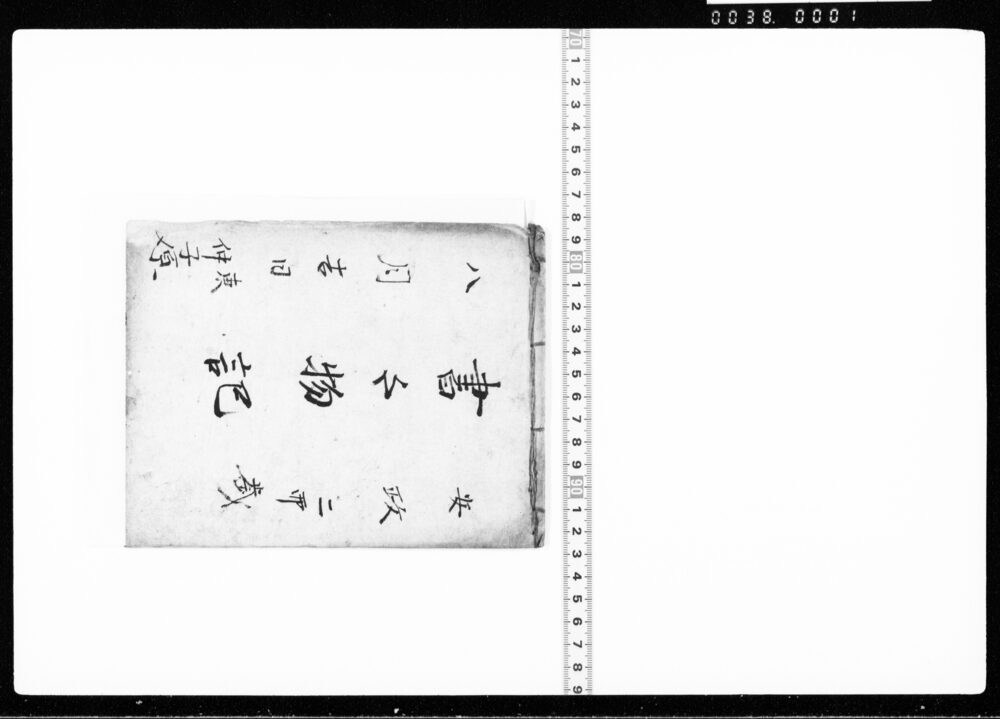 0038. 0001
安政二卯歳
書物記
八月吉日
東
仲子原
70 1 2 3 4 5 6 7 8 9 80 1 2 3 4 5 6 7 8 9 90 1 2 3 4 5 6 7 8 9